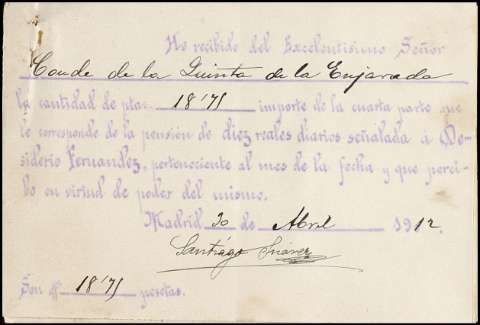 He recibido del Excelentísimo Señor
Conde de la Quinta de la Enjarada
la cantidad de ptas. 18'75 importe de la cuarta parte que
le corresponde de la pensión de diez reales diarios señalada á De-
siderio Fernandez, perteneciente al mes de la fecha y que perci-
bo en virtud de poder del mismo.
Madrid 30 de Abril 1912
Santiágo Suárez
Son # 18'75 pesetas.